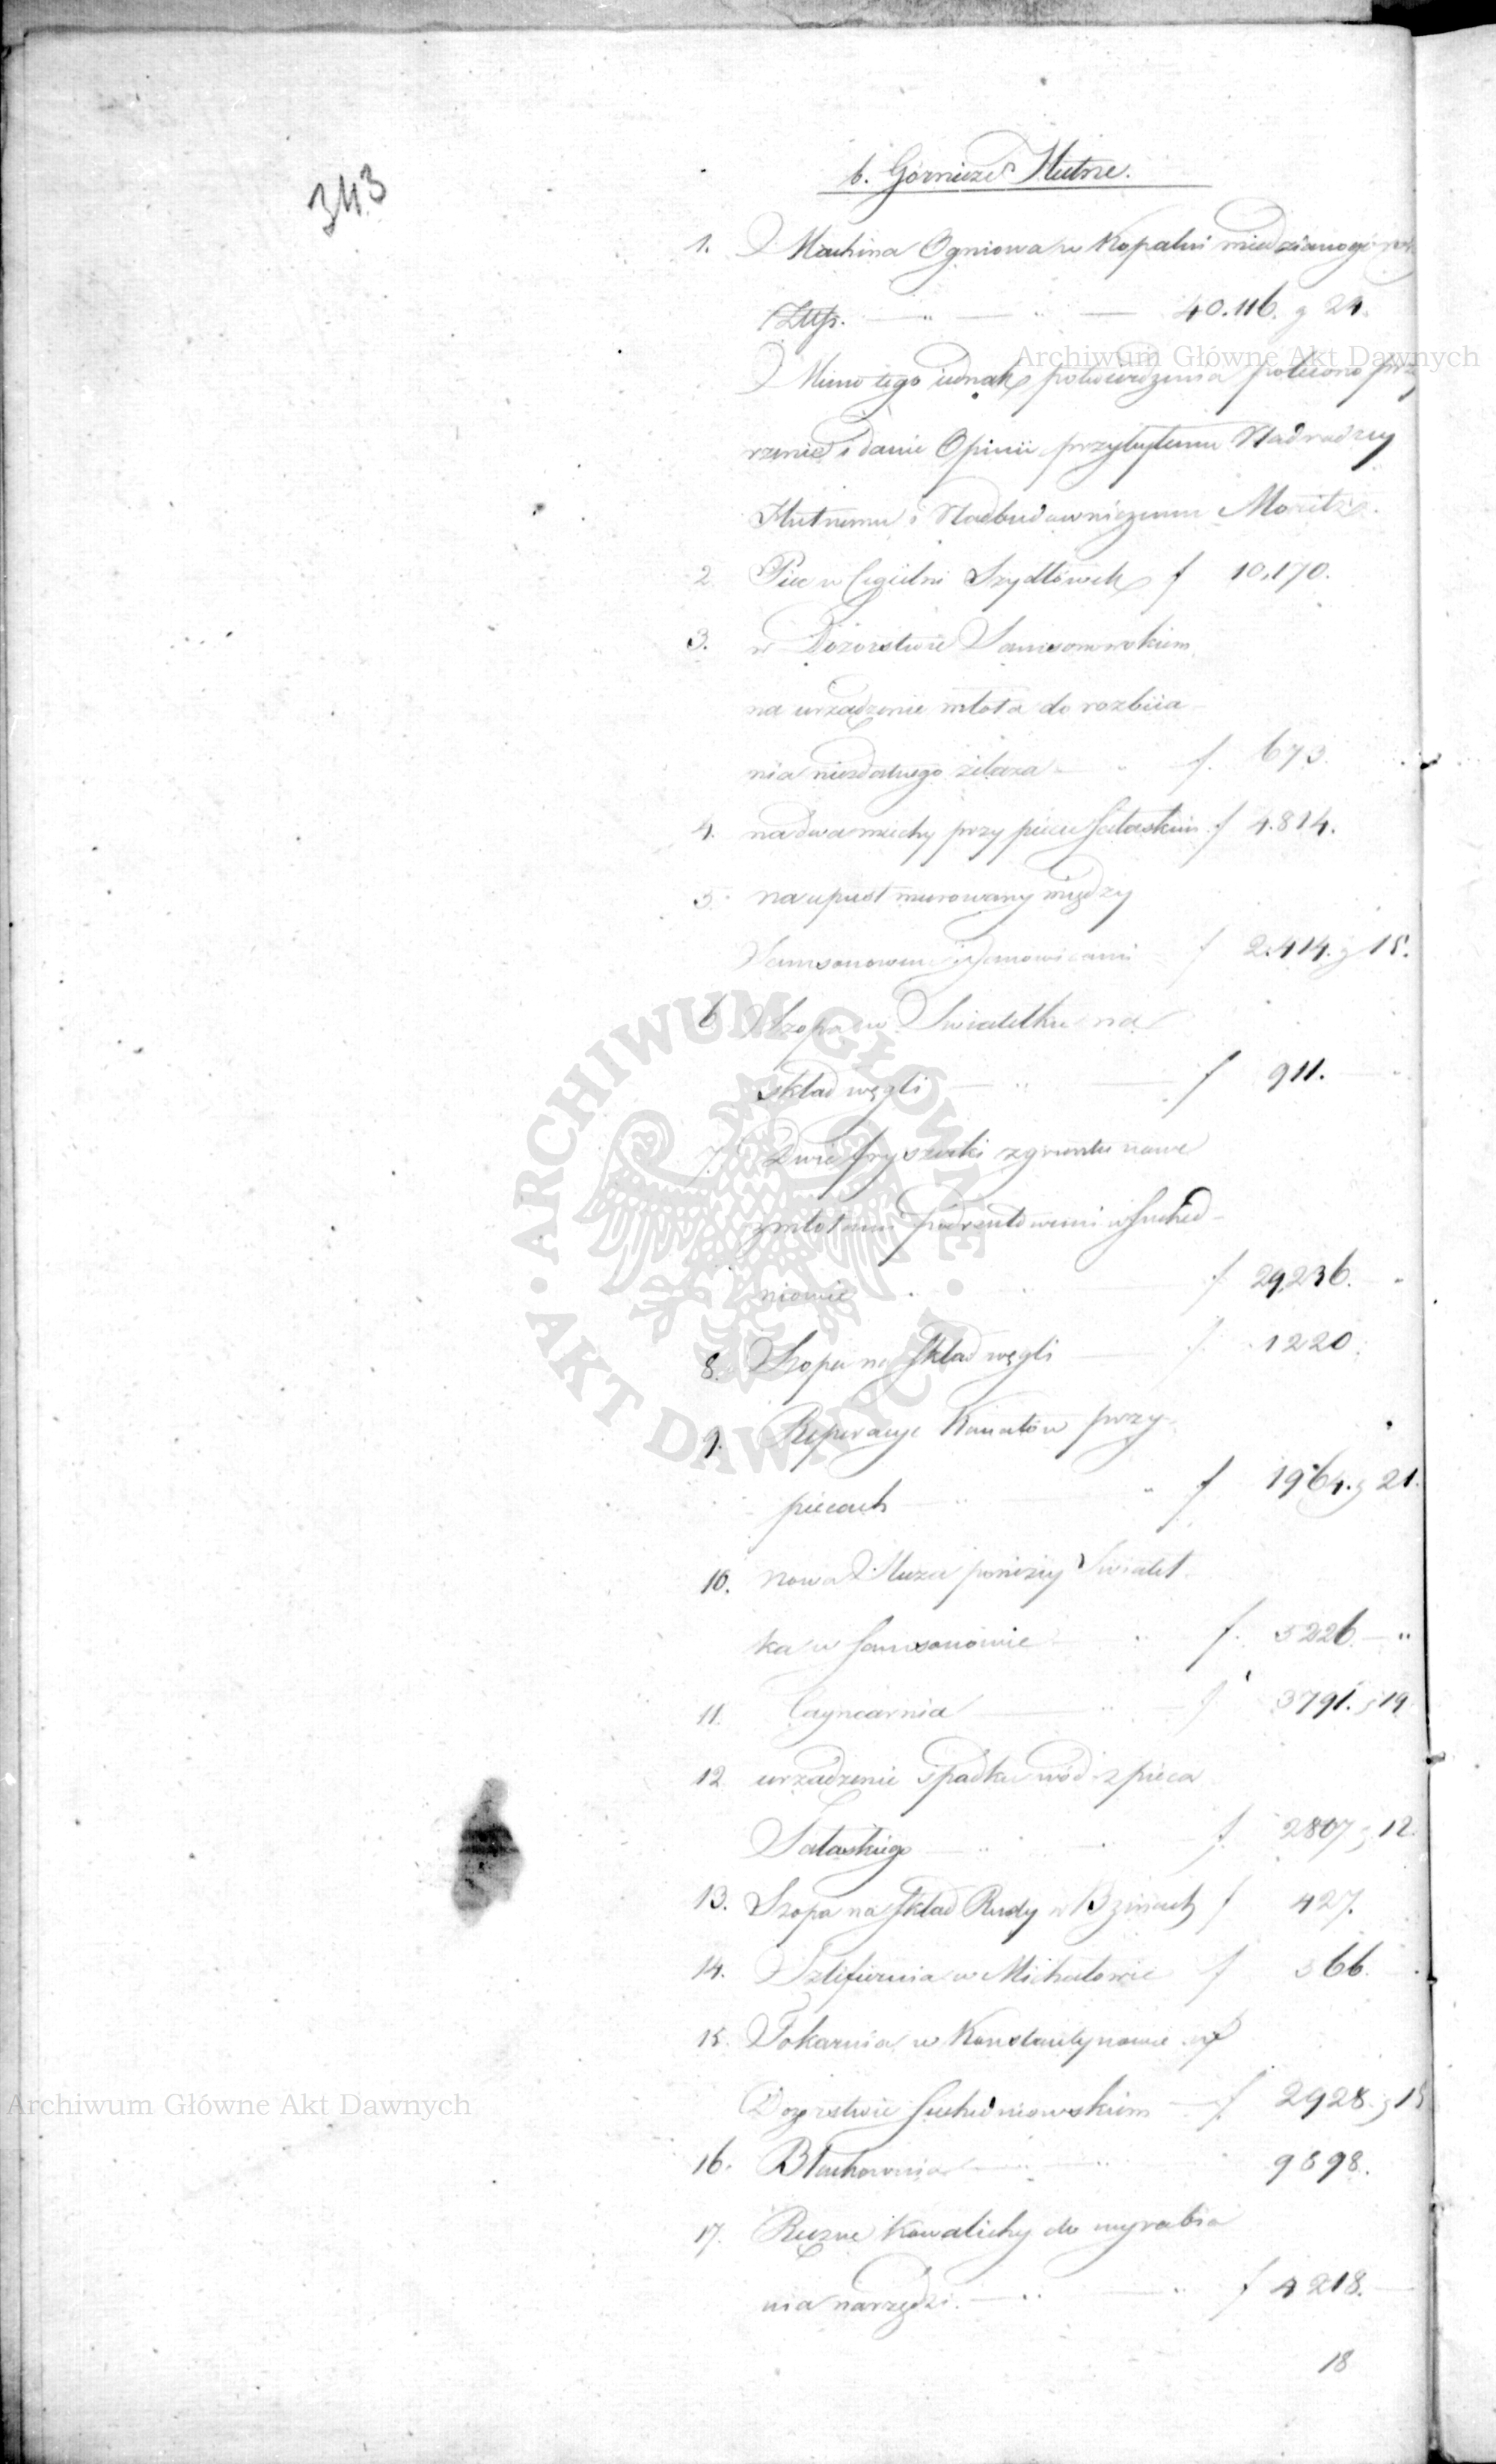 343
b. Górnicze Hutne.
1. Machina Ogniowa w Kopalni miedzianogór
Złłp. — " — " — 40.116. g 24.
Archiwum Główne Akt Dawnych
Mimo tego iednak potwierdzenia polecono prz
rzenie i danie Opinii przybyłemu Nadradzcy
Hutnemu i Nadbudowniczemu Moritz.
2. Piec w Cegielni Szydłówek f 10,170.
3. w Dozorstwie Samsonowskiem
na urządzenie młota do rozbiia
nia niezdatnego żelaza — " f. 673.
4. na dwa miechy przy piecu Sałaskim f 4.814.
5. na upust murowany między
Samsonowem i Janowicami f 2.414. g 15.
6. Szopa w Swiatełku na
skład węgli — " — f 911.
7. Dwie fryszerki z gruntu nowe
z młotami podrzutowemi w Suched-
niowie f 29,236. -
8. Szopa na Skład węgli — f. 1220.
9. Reperacye Kanałów przy
piecach — " — " f 1964. g 21.
10. nowa Sluza poniżey Swiateł
ka w Samsonowie — " f. 5226. — "
11. Caynearnia — " — f 3791. g 19
12. urządzenie spadku wód z pieca
Sałaskiego — " f. 2807 g 12.
13. Szopa na Skład Rudy w Bzinach f 427.
14. Szlifiernia w Michałowie f 366.
15. Tokarnia w Konstantynowie w
Dozorstwie Suchedniowskiem — f 2928. g 15
16. Blachownia — " — " 9898.
17. Ręczne Kowalichy do wyrabia
nia narzędzi. — " — " f 4218. —
18
ARCHIWUM GŁÓWNE AKT DAWNYCH
Archiwum Główne Akt Dawnych